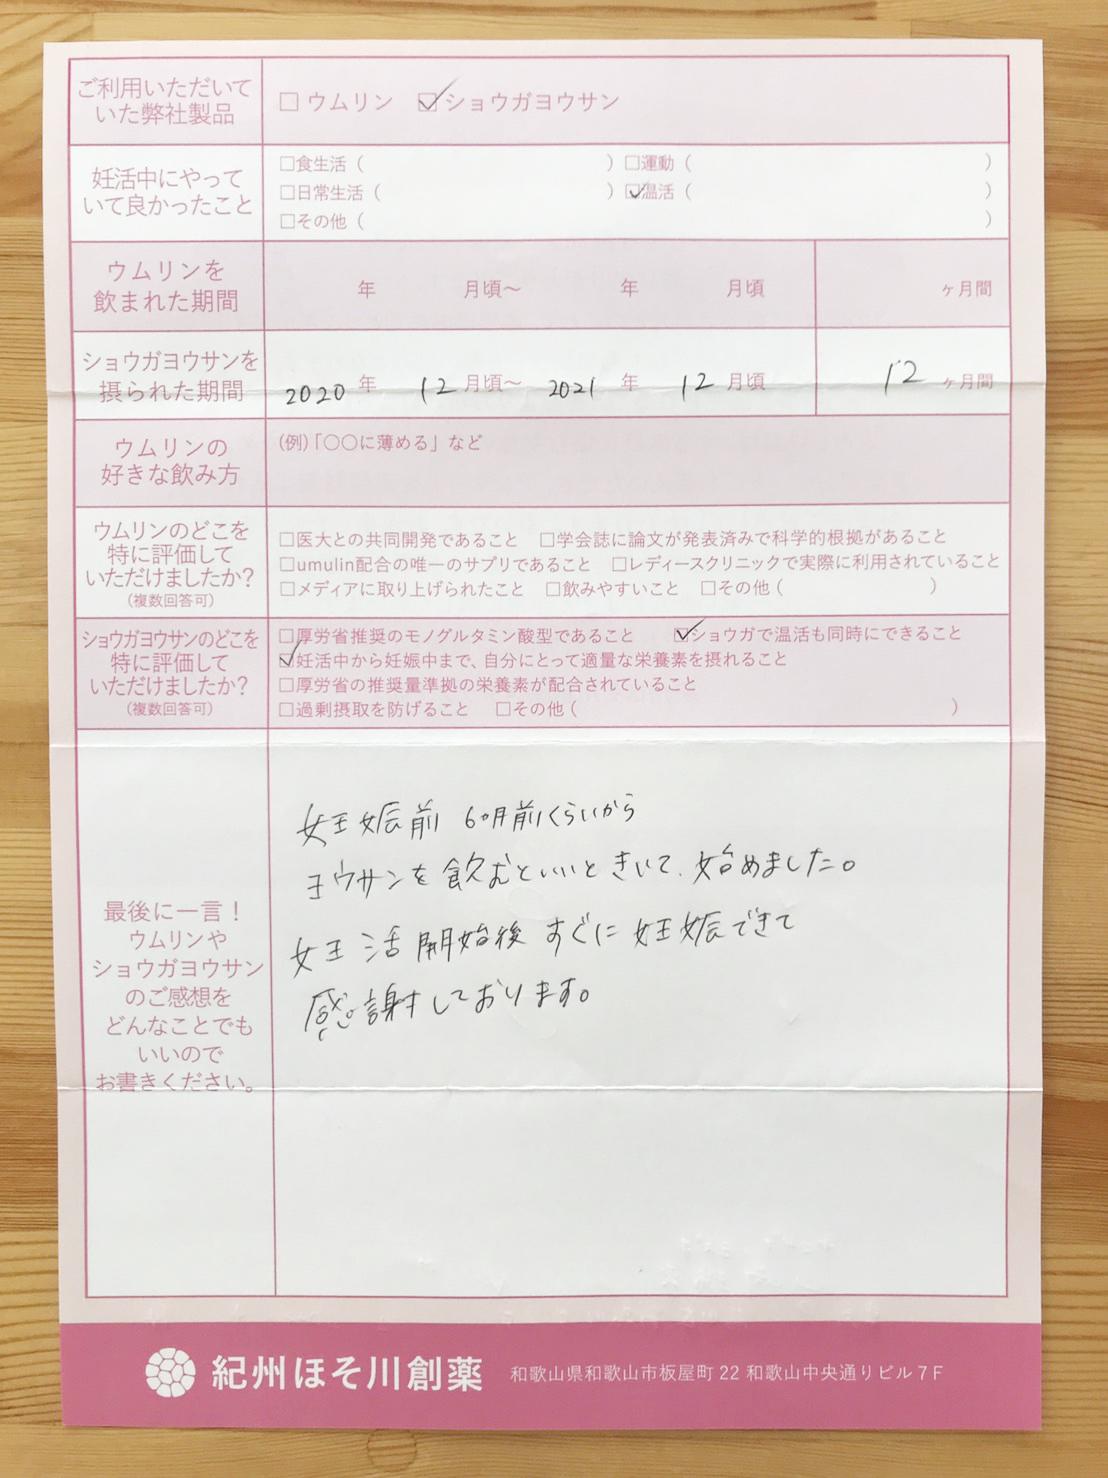 ご利用いただいて
いた弊社製品
□ウムリン ☑ショウガヨウサン
妊活中にやって
いて良かったこと
□食生活( ) □運動( )
□日常生活( ) ☑温活( )
□その他( )
ウムリンを
飲まれた期間
年 月頃～ 年 月頃 ヶ月間
ショウガヨウサンを
摂られた期間
2020年 12月頃～ 2021年 12月頃 12ヶ月間
ウムリンの
好きな飲み方
(例)「○○に薄める」など
ウムリンのどこを
特に評価して
いただけましたか?
(複数回答可)
□医大との共同開発であること □学会誌に論文が発表済みで科学的根拠があること
□umulin配合の唯一のサプリであること □レディースクリニックで実際に利用されていること
□メディアに取り上げられたこと □飲みやすいこと □その他( )
ショウガヨウサンのどこを
特に評価して
いただけましたか?
(複数回答可)
□厚労省推奨のモノグルタミン酸型であること ☑ショウガで温活も同時にできること
☑妊活中から妊娠中まで、自分にとって適量な栄養素を摂れること
□厚労省の推奨量準拠の栄養素が配合されていること
□過剰摂取を防げること □その他( )
最後に一言!
ウムリンや
ショウガヨウサン
のご感想を
どんなことでも
いいので
お書きください。
妊娠前 6ヶ月前くらいから
ヨウサンを飲むといいときいて、始めました。
妊活開始後すぐに妊娠できて
感謝しております。
紀州ほそ川創薬 和歌山県和歌山市板屋町 22 和歌山中央通りビル 7 F